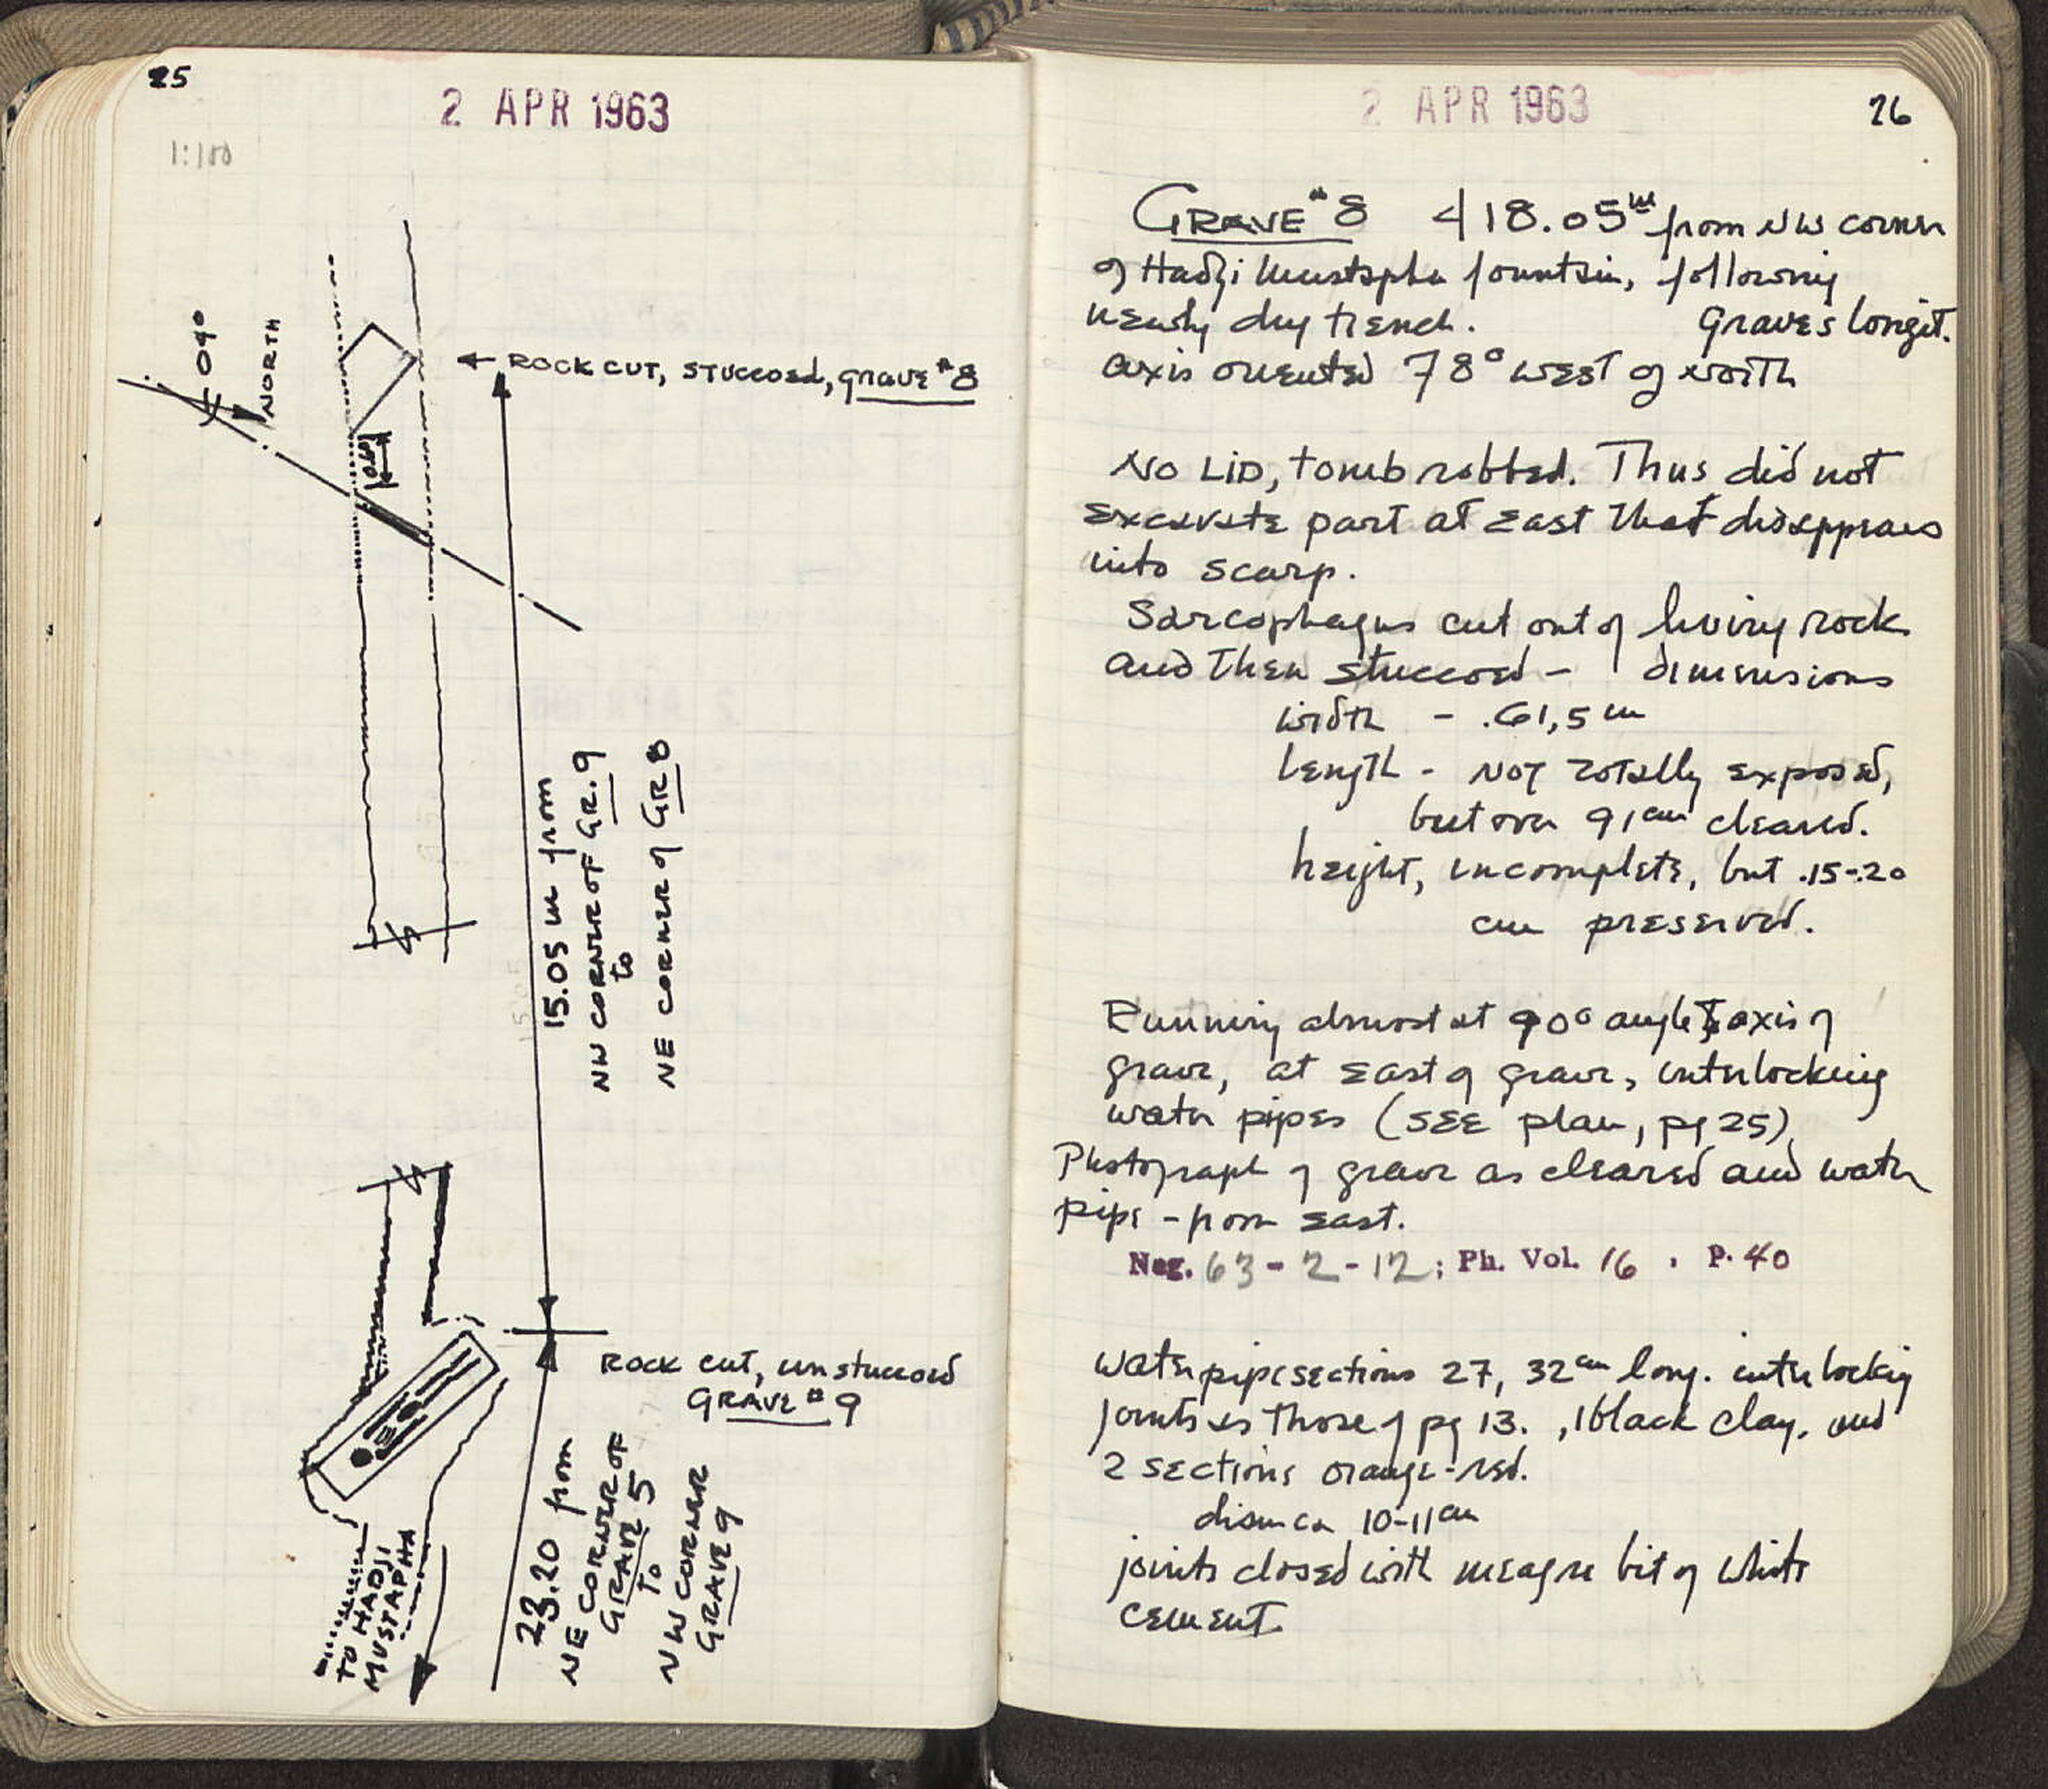 25
2 APR 1963
1:100
NORTH
← ROCK CUT, STUCCOED, GRAVE #8
15.05 m from
NW CORNER OF GR. 9
to
NE CORNER of GR 8
ROCK CUT, unstuccoed
GRAVE #9
23.20 from
NE CORNER OF
GRAVE 5
to
NW CORNER
GRAVE 9
TO HADJI
MUSTAPHA
2 APR 1963
26
GRAVE #8 418.05m from NW corner
of Hadji Mustapha fountain, following
newly dug trench. Graves longit.
axis oriented 78° west of north
No LID, tomb robbed. Thus did not
excavate part at east that disappears
into scarp.
Sarcophagus cut out of living rock
and then stuccoed - dimensions
width - .61,5 m
length - not totally exposed,
but over 91cm cleared.
height, incomplete, but .15-.20
cm preserved.
Running almost at 90° angle to axis of
grave, at east of grave, interlocking
water pipes (see plan, pg 25)
Photograph of grave as cleared and water
pipe - from east.
Neg. 63-2-12; Ph. Vol. 16 . P. 40
Water pipe sections 27, 32cm long. interlocking
joints as those of pg 13. , 1 black clay, and
2 sections orange-red.
diam ca 10-11cm
joints closed with meagre bit of white
cement.